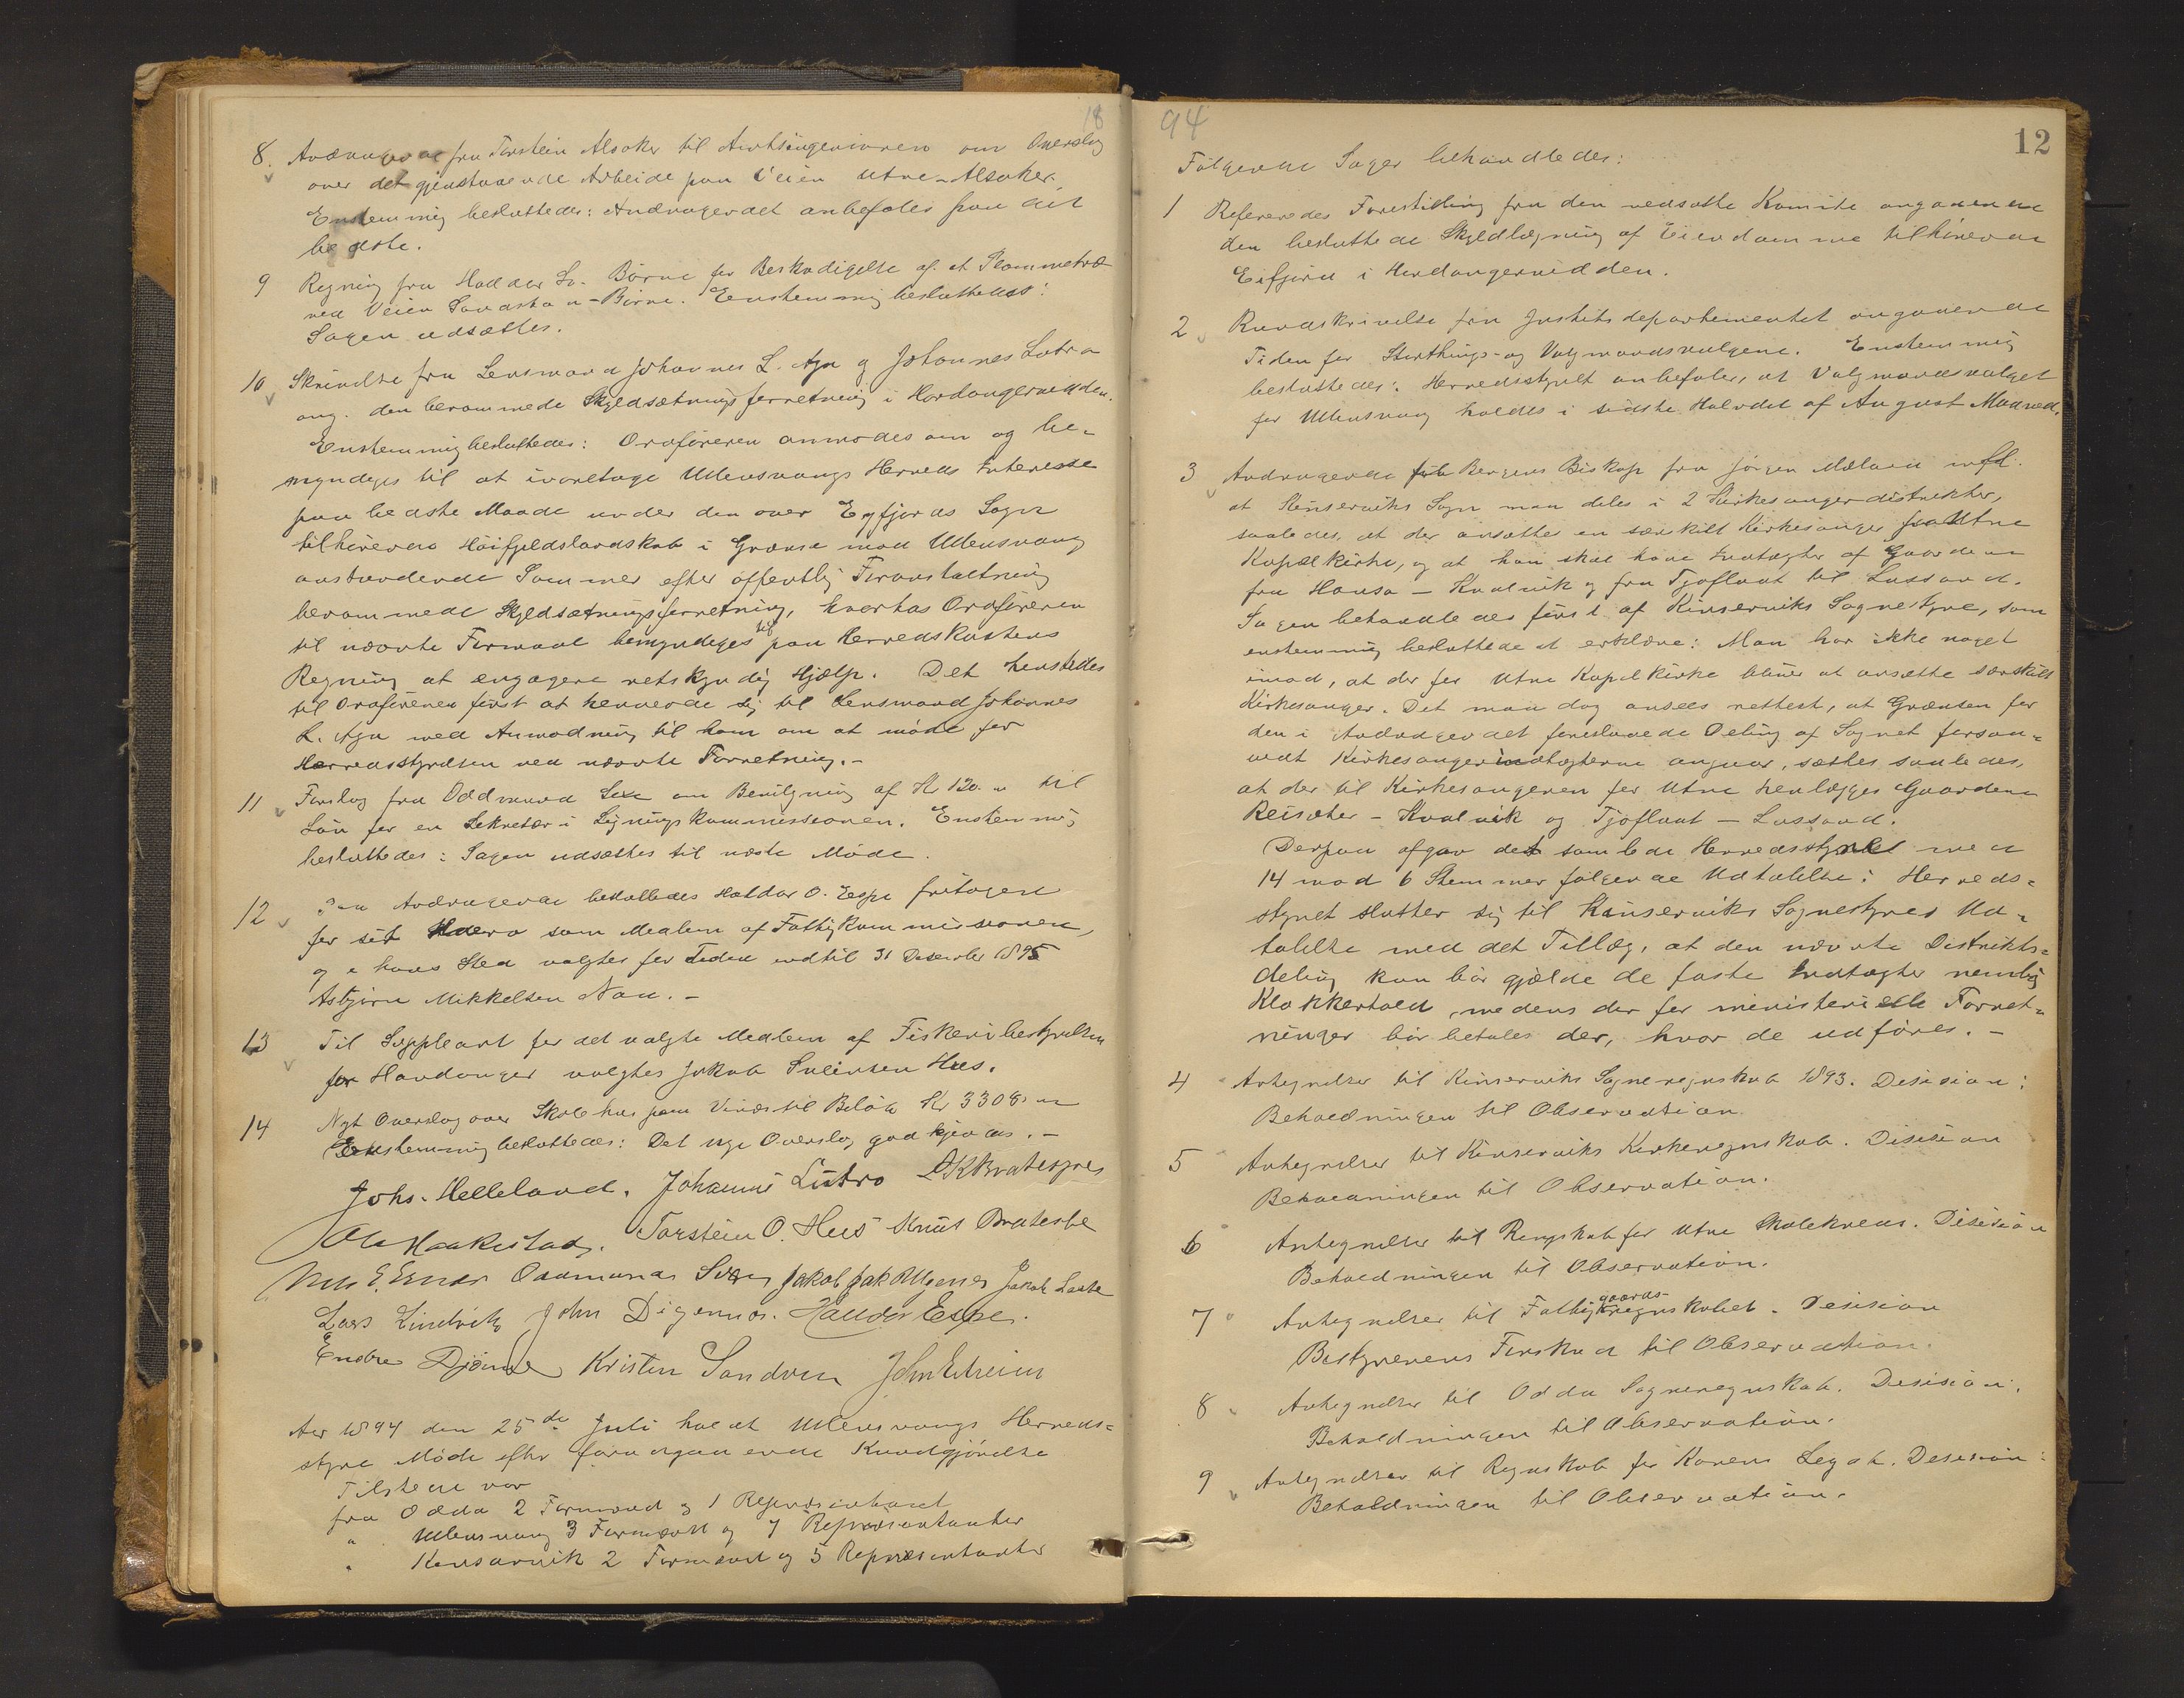 18
8. Andragende fra Torstein Alsaker til Amtsingeniøren om Overslag
over det gjenstaaende Arbeide paa Veien Utne-Alsaker.
Enstemmig besluttedes: Andragendet anbefales paa det
bedste.
9 Regning fra Haldor L. Børve for Beskadigelse af et Plommetræ
ved Veien Sandstø-Børve. Enstemmig besluttedes:
Sagen udsættes.
10 Skrivelse fra Lensmand Johannes L. Aga og Johannes Lutro
ang. den berammede Skyldsætningsforretning i Hardangervidden.
Enstemmig besluttedes: Ordføreren anmodes om og be-
myndiges til at ivaretage Ullensvangs Herreds Interesse
paa bedste Maade under den over Eyfjords Sogn
tilhørende Høifjeldslandskab i Grænse mod Ullensvang
anstundende Sommer efter offentlig Foranstaltning
berammede Skyldsætningsforretning, hvorhos Ordføreren
til nævnte Formaal bemyndiges til paa Herredskassens
Regning at engagere retskyndig Hjælp. Det henstilles
til Ordføreren først at henvende sig til Lensmand Johannes
L. Aga med Anmodning til ham om at møde for
Herredsstyrelsen ved nævnte Forretning.-
11 Forslag fra Oddmund Sexe om Bevilgning af Kr 120 „ til
Løn for en Sekretær i Ligningskommissionen. Enstemmig
besluttedes: Sagen udsættes til næste Møde.
12 Paa Andragende besluttedes Haldor O. Espe fritagen
for sit Hverv som Medlem af Fattigkommissionen,
og i hans Sted valgtes for Tiden indtil 31 December 1895
Asbjørn Mikkelsen Naa.-
13 Til Suppleant for det valgte Medlem af Fiskeribestyrelsen
for Hardanger valgtes Jakob Sveinsen Hus.
14 Nyt Overslag over Skolehus paa Vinæs til Beløb Kr 3308 „
Enstemmig besluttedes: Det nye Overslag godkjendes.-
Johs. Helleland. Johannes Lutro
Ole Haakestad. Torstein O. Hus Knut Bratespe
Oddmund Sexe Jakob Jak Ulgenes Jakob
Lars Lindvik John Digernes. Halldor Espe.
Endre Djønne Kristen Sandven John Eitrheim
Aar 1894 den 25de Juli holdt Ullensvangs Herreds-
styre Møde efter foregaaende Kundgjørelse
Tilstede var
fra Odda 2 Formænd og 1 Repræsentant
„ Ullensvang 3 Formænd og 7 Repræsentanter
„ Kinservik 2 Formænd og 5 Repræsentanter
94
12
Følgende Sager behandledes:
1 Refereredes Forestilling fra den nedsatte Komite angaaende
den besluttede Skyldlægning af Eiendomme tilhørende
Eifjord i Hardangervidden.
2 Rundskrivelse fra Justitsdepartementet angaaende
Tiden for Storthings- og Valgmandsvalgene. Enstemmig
besluttedes: Herredsstyret anbefaler, at Valgmandsvalget
for Ullensvang holdes i sidste Halvdel af August Maaned.
3 Andragende til Bergens Biskop fra Jørgen Mæland m fl.
at Kinserviks Sogn maa deles i 2 Kirkesangerdistrikter,
saaledes, at der ansættes en særskilt Kirkesanger for Utne
Kapelkirke, og at han skal have Indtægter af Gaardene
fra Hauso - Kvalvik og fra Tjoflaat til Lussand.
Sagen behandledes først af Kinserviks Sognestyre, som
enstemmig besluttede at erklære: Man har ikke noget
imod, at der for Utne Kapelkirke bliver at ansætte særskilt
Kirkesanger. Det maa dog ansees rettest, at Grænsen for
den i Andragendet foreslaaede Deling af Sognet forsaa-
vidt Kirkesangerindtægterne angaar, sættes saaledes,
at der til Kirkesangeren for Utne henlægges Gaardene
Reisæter - Kvalvik og Tjoflaat - Lussand.
Derpaa afgav det samlede Herredsstyre med
14 mod 6 Stemmer følgende Udtalelse: Herreds-
styret slutter sig til Kinserviks Sognestyres Ud-
talelse med det Tillæg, at den nævnte Distrikts-
deling kun bør gjælde de faste Indtægter nemlig
Klokkertold, medens der for ministerielle Forret-
ninger bør betales der, hvor de udføres.-
4 Antegnelser til Kinserviks Sogneregnskab 1893. Desision:
Beholdningen til Observation
5 Antegnelser til Kinserviks Kirkeregnskab. Desision
Beholdningen til Observation.
6 Antegnelser til Regnskab for Utne Skolekreds. Desision
Beholdningen til Observation.
7 Antegnelser til Fattiggaardsregnskabet. Desision
Bestyrerens Forskud til Observation.
8 Antegnelser til Odda Sogneregnskab. Desision:
Beholdningen til Observation.
9 Antegnelser til Regnskab for Konens Legat. Desision:
Beholdningen til Observation.